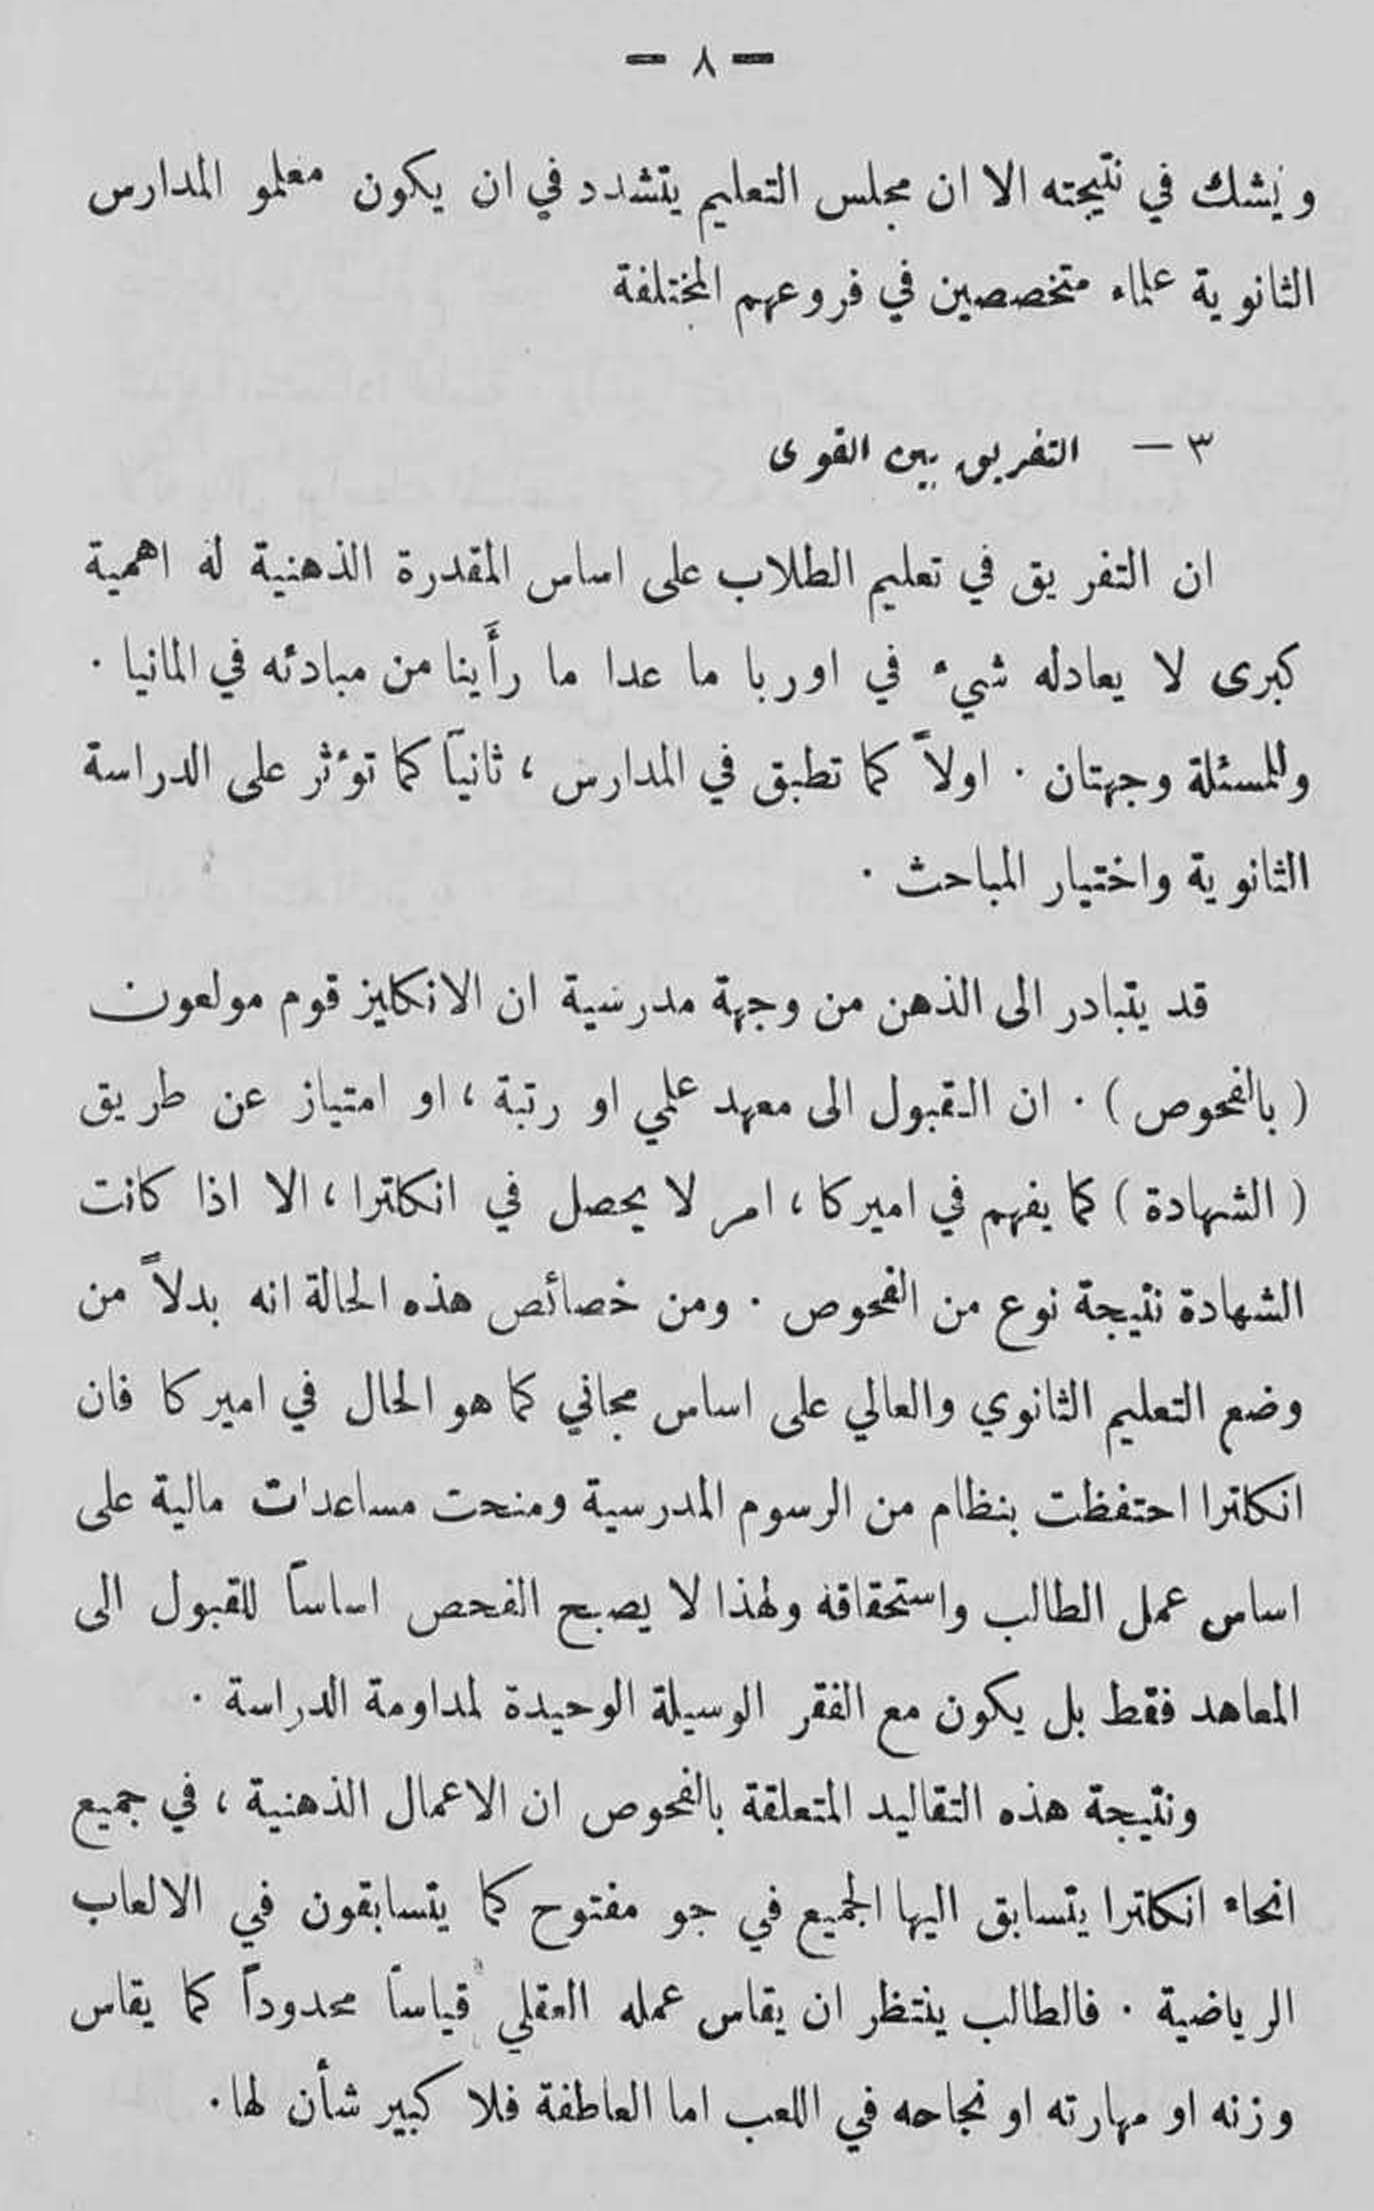 — ٨ —
ويشك في نتيجته الا ان مجلس التعليم يتشدد في ان يكون معلمو المدارس
الثانوية علماء متخصصين في فروعهم المختلفة
٣ — التفريق بين القوى
ان التفريق في تعليم الطلاب على اساس المقدرة الذهنية له اهمية
كبرى لا يعادله شيء في اوربا ما عدا ما رأَينا من مبادئه في المانيا .
وللمسئلة وجهتان . اولاً كما تطبق في المدارس ، ثانياً كما تؤثر على الدراسة
الثانوية واختيار المباحث .
قد يتبادر الى الذهن من وجهة مدرسية ان الانكليز قوم مولعون
( بالفحوص ) . ان القبول الى معهد علمي او رتبة ، او امتياز عن طريق
( الشهادة ) كما يفهم في اميركا ، امر لا يحصل في انكلترا ، الا اذا كانت
الشهادة نتيجة نوع من الفحوص . ومن خصائص هذه الحالة انه بدلاً من
وضع التعليم الثانوي والعالي على اساس مجاني كما هو الحال في اميركا فان
انكلترا احتفظت بنظام من الرسوم المدرسية ومنحت مساعدات مالية على
اساس عمل الطالب واستحقاقه ولهذا لا يصبح الفحص اساساً للقبول الى
المعاهد فقط بل يكون مع الفقر الوسيلة الوحيدة لمداومة الدراسة .
ونتيجة هذه التقاليد المتعلقة بالفحوص ان الاعمال الذهنية ، في جميع
انحاء انكلترا يتسابق اليها الجميع في جو مفتوح كما يتسابقون في الالعاب
الرياضية . فالطالب ينتظر ان يقاس عمله العقلي قياساً محدوداً كما يقاس
وزنه او مهارته او نجاحه في اللعب اما العاطفة فلا كبير شأن لها .